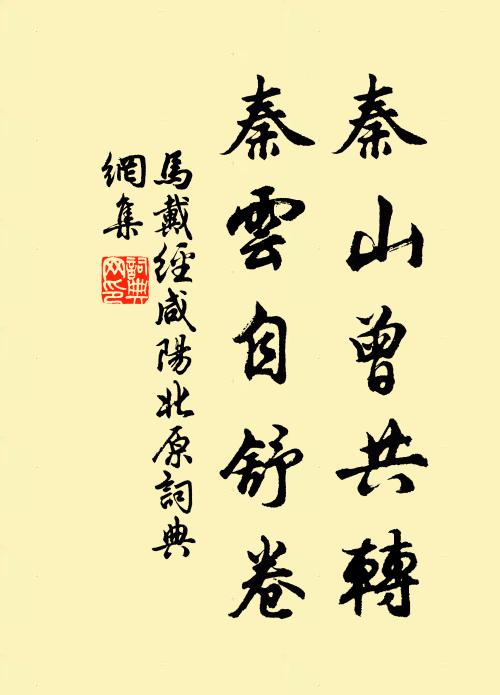 秦山曾共轉
秦雲自舒卷
馬戴經咸陽北原詞典
網集
詞典網印